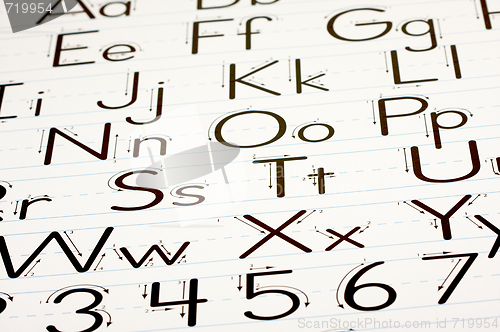 #219955
Aa
Ee Ff Gg
Ii Jj Kk Ll
Nn Oo Pp
r Ss Tt Uu
Ww Xx Yy
3 4 5 6 7
© 219955 www.crestock.com